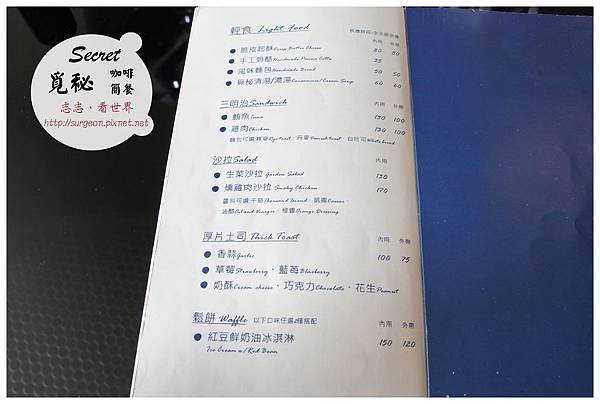 Secret
覓秘 咖啡
簡餐
志志，看世界
http://surgeon.pixnet.net
輕食 Light Food
內用 外帶
脆皮起酥 Crisp Butter Cheese 80 80
手工奶酪 Handmade Panna Cotta 35
風味麵包 Handmade Bread 50 50
覓秘清湯/濃湯 Consomme/Cream Soup 60 60
三明治 Sandwich 內用 外帶
鮪魚 Tuna 130 100
雞肉 Chicken 130 100
麵包可選:裸麥Rye toast、丹麥Danish toast、白吐司White bread
沙拉 Salad 內用
生菜沙拉 Garden Salad 130
燻雞肉沙拉 Smoky Chicken 170
醬料可選:千島Thousand Island、凱薩Caesar、
油醋Oil and Vinegar、橙醬Orange Dressing
厚片土司 Thick Toast 內用 外帶
香蒜Garlic 100 75
草莓Strawberry、藍莓Blueberry
奶酥Cream cheese、巧克力Chocolate、花生Peanut
鬆餅 Waffle 以下口味任選2種搭配 內用 外帶
紅豆鮮奶油冰淇淋 150 120
Ice Cream w/Red Bean